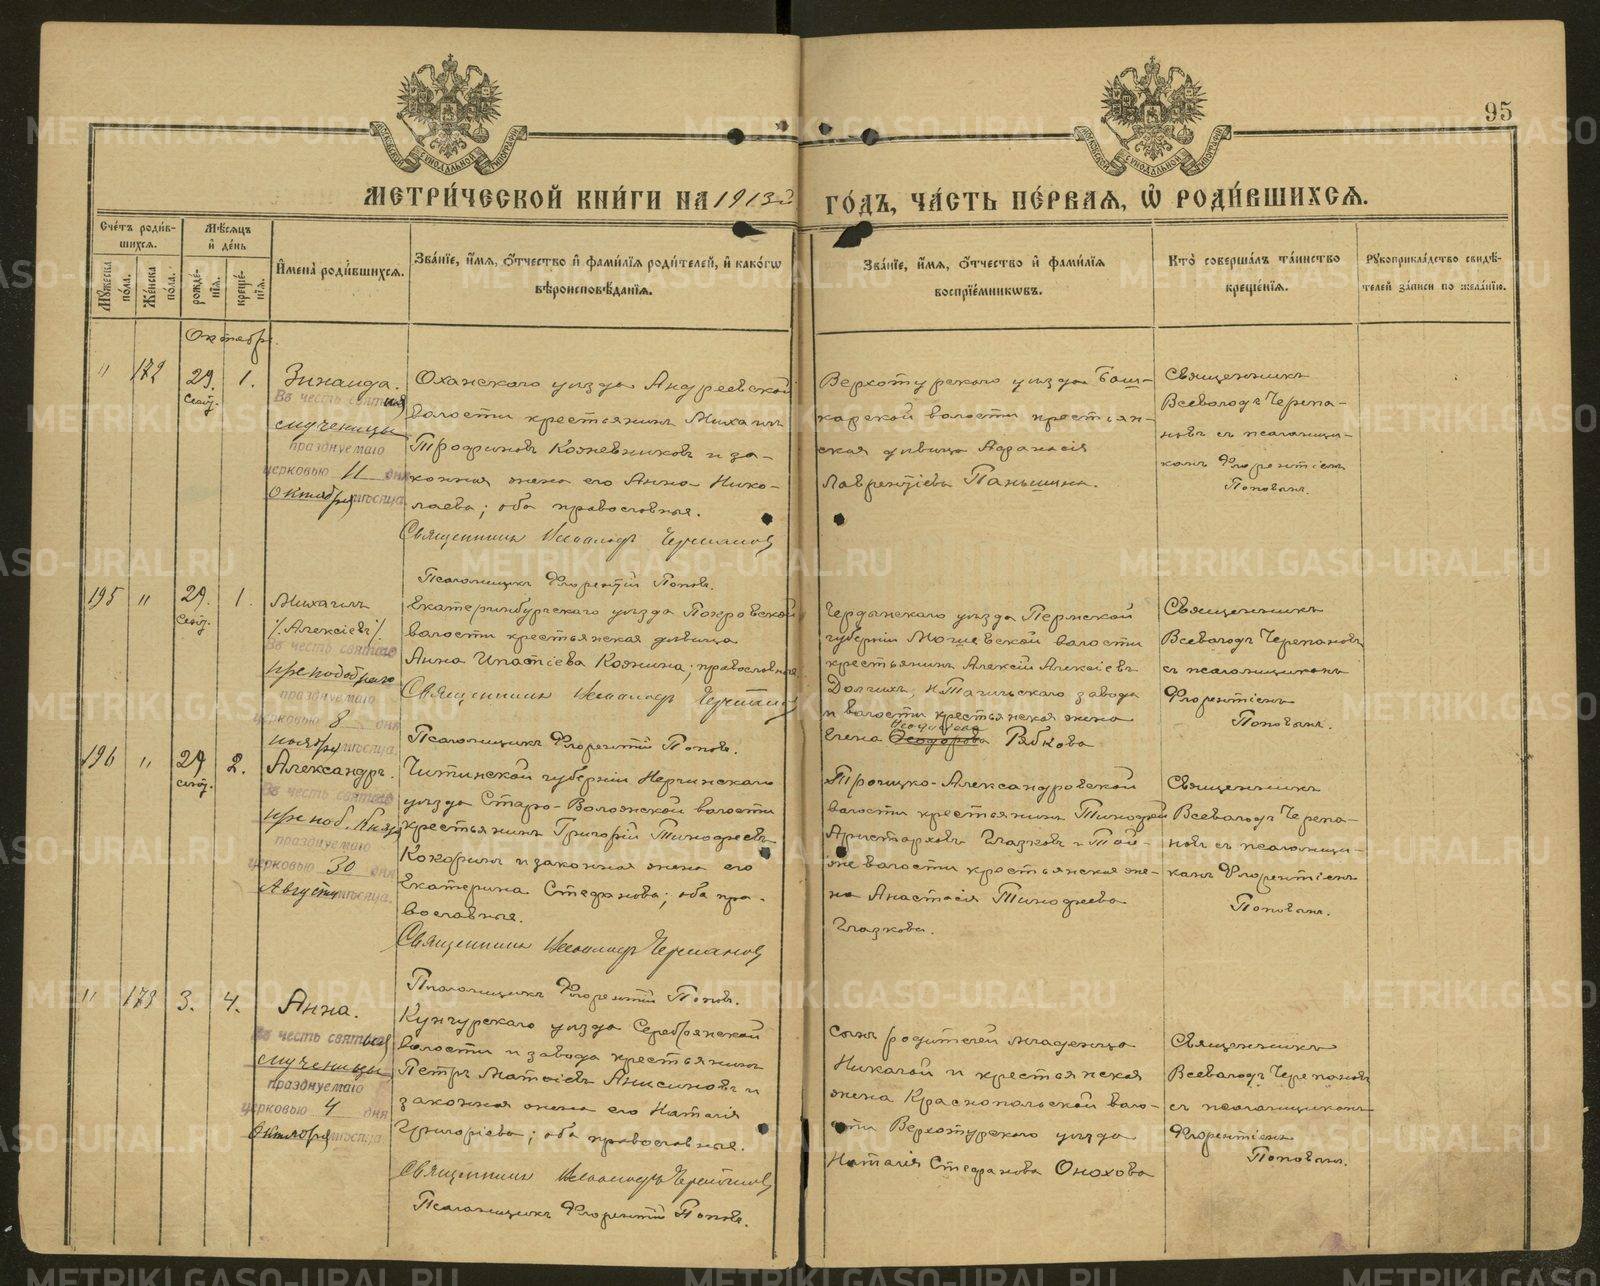 95
МЕТРИ́ЧЕСКОЙ КНИ́ГИ НА 1913й ГО́ДЪ, ЧА́СТЬ ПЕ́РВАѦ, Ѡ҆ РОДИ́ВШИХСѦ.
Сче́тъ роди́вшихсѧ.
Мѣ́сѧцъ и҆ де́нь
Мꙋ́жеска по́ла.
Же́нска по́ла.
рожде́нїѧ.
креще́нїѧ.
И҆мена̀ роди́вшихсѧ.
Зва́нїе, и҆́мѧ, ѻ҆́тчество и҆ фами́лїѧ роди́телей, и҆ како́гѡ вѣроисповѣ́данїѧ.
Зва́нїе, и҆́мѧ, ѻ҆́тчество и҆ фами́лїѧ воспрїе́мникѡвъ.
Кто̀ соверша́лъ та́инство креще́нїѧ.
Рꙋкоприкла́дство свидѣ́телей за́писи по жела́нїю.
Октябрь.
" 172 29. 1.
Сент.
Зинаида.
Въ честь святыя
мученицы
празднуемаго
церковью 11 дня
Октября мѣсяца
Оханскаго уѣзда Андреевской
волости крестьянинъ Михаилъ
Трофимовъ Кожевниковъ и за-
конная жена его Анна Нико-
лаева; оба православные.
Священникъ Всеволодъ Черепановъ
Псаломщикъ Флорентій Поповъ.
Верхотурскаго уѣзда Баш-
карской волости крестьян-
ская дѣвица Афанасія
Лаврентіева Паньшина.
Священникъ
Всеволодъ Черепа-
новъ съ псаломщи-
комъ Флорентіемъ
Поповымъ.
195 " 29. 1.
Сент.
Михаилъ
/Алексіевъ/.
Въ честь святаго
преподобнаго
празднуемаго
церковью 8 дня
ноября мѣсяца
Екатеринбургскаго уѣзда Покровской
волости крестьянская дѣвица
Анна Ипатіева Кожина; православная
Священникъ Всеволодъ Черепановъ
Псаломщикъ Флорентій Поповъ.
Чердынскаго уѣзда Пермской
губерніи Мошевской волости
крестьянинъ Алексій Алексіевъ
Долгихъ, Н-Тагильскаго завода
и волости крестьянская жена
Елена Ѳеодорова Рябкова
Священникъ
Всеволодъ Черепановъ
съ псаломщикомъ
Флорентіемъ
Поповымъ.
196 " 29 2.
сент.
Александръ.
Въ честь святаго
препод. Князя
празднуемаго
церковью 30 дня
Августа мѣсяца.
Читинской губерніи Нерчинскаго
уѣзда Старо-Воложской волости
крестьянинъ Григорій Тимофеевъ
Кокоринъ и законная жена его
Екатерина Стефанова; оба пра-
вославные.
Священникъ Всеволодъ Черепановъ
Псаломщикъ Флорентій Поповъ.
Троицко-Александровской
волости крестьянинъ Тимофей
Аристарховъ Глазковъ и той-
же волости крестьянская же-
на Анастасія Тимофеева
Глазкова.
Священникъ
Всеволодъ Черепа-
новъ съ псаломщи-
комъ Флорентіемъ
Поповымъ.
" 173 3. 4.
Анна.
Въ честь святыя
мученицы
празднуемаго
церковью 4 дня
Октября мѣсяца
Кунгурскаго уѣзда Серебрянской
волости и завода крестьянинъ
Петръ Матѳіевъ Анисимовъ и
законная жена его Наталія
Григоріева; оба православные.
Священникъ Всеволодъ Черепановъ
Псаломщикъ Флорентій Поповъ.
сынъ родителей младенца
Николай и крестьянская
жена Краснопольской воло-
сти Верхотурскаго уѣзда
Наталія Стефанова Онохова
Священникъ
Всеволодъ Черепановъ
съ псаломщикомъ
Флорентіемъ
Поповымъ.
METRIKI.GASO-URAL.RU